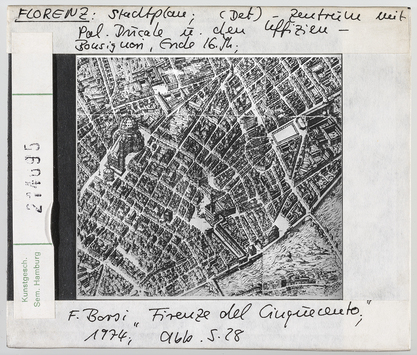 FLORENZ: Stadtplan; (Det) – Zentrum mit
Pal. Ducale u. den Uffizien –
Bonsignori, Ende 16. Jh;
214095
Kunstgesch.
Sem. Hamburg
F. Borsi "Firenze del Cinquecento,"
1974; Abb. S. 28